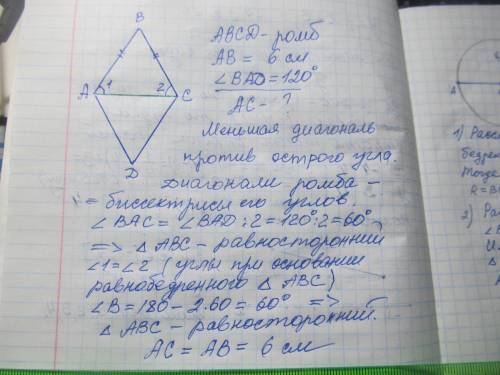 B
A 1 2 C
D
ABCD - ромб
AB = 6 см
∠BAD = 120°
AC - ?
Меньшая диагональ
против острого угла.
Диагонали ромба -
- биссектрисы его углов.
∠BAC = ∠BAD : 2 = 120° : 2 = 60°
=> △ ABC - равносторонний
∠1 = ∠2 (углы при основании
равнобедренного △ ABC)
∠B = 180 - 2·60 = 60° =>
△ ABC - равносторонний.
AC = AB = 6 см
A
1) Расс
бедре
тогда
R = B
2) Ра
∠B